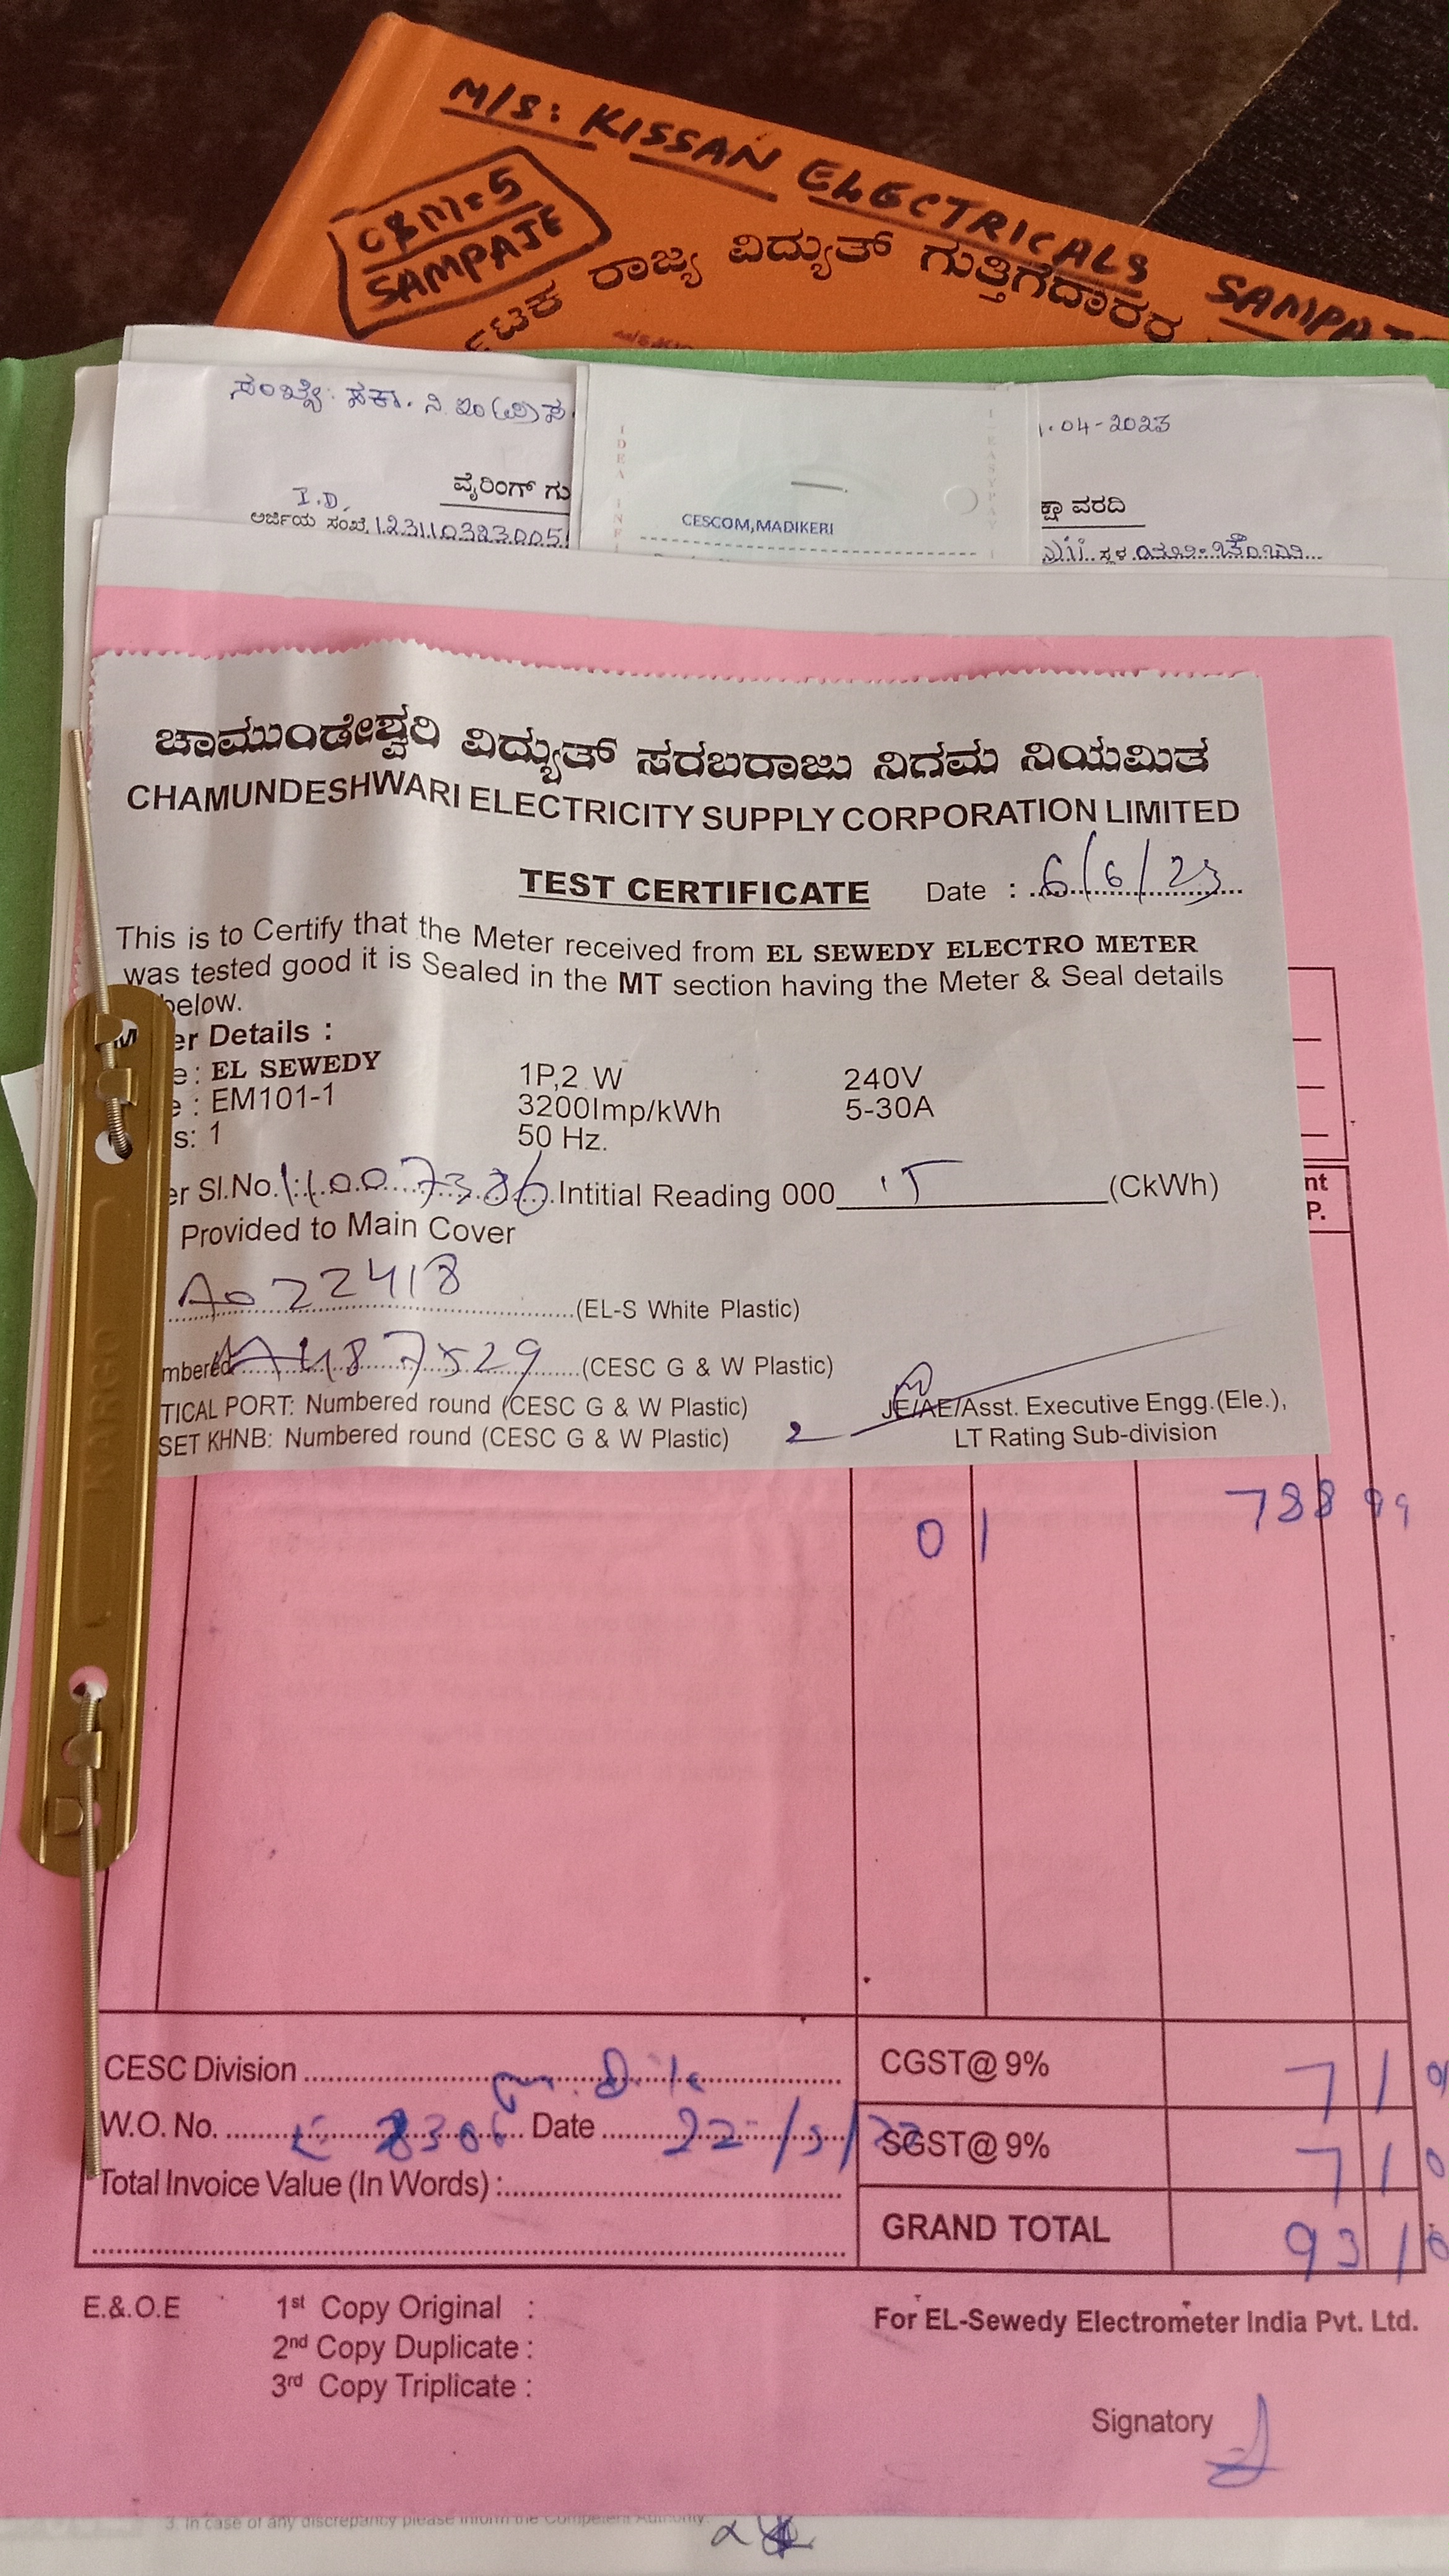 M/S: KISSAN ELECTRICALS
O&M-5
SAMPAJE
ರಾಜ್ಯ ವಿದ್ಯುತ್ ಗುತ್ತಿಗೆದಾರರ
ಸಂಖ್ಯೆ:
04-2023
I.D.
ವೈರಿಂಗ್ ಗು
ವರದಿ
ಅರ್ಜಿಯ ಸಂಖ್ಯೆ. 123110323005
ಸ್ಥಳ
CESCOM,MADIKERI
ಚಾಮುಂಡೇಶ್ವರಿ ವಿದ್ಯುತ್ ಸರಬರಾಜು ನಿಗಮ ನಿಯಮಿತ
CHAMUNDESHWARI ELECTRICITY SUPPLY CORPORATION LIMITED
TEST CERTIFICATE Date : 6/6/23
This is to Certify that the Meter received from EL SEWEDY ELECTRO METER
was tested good it is Sealed in the MT section having the Meter & Seal details
below.
er Details :
e : EL SEWEDY 1P,2 W 240V
e : EM101-1 3200Imp/kWh 5-30A
s: 1 50 Hz.
er Sl.No. 11007386 Intitial Reading 000 (CkWh)
Provided to Main Cover
A022418 (EL-S White Plastic)
mbered (CESC G & W Plastic)
TICAL PORT: Numbered round (CESC G & W Plastic)
SET KHNB: Numbered round (CESC G & W Plastic)
JE/AE/Asst. Executive Engg.(Ele.),
LT Rating Sub-division
nt
P.
01 788 99
CESC Division
CGST@ 9% 71
W.O. No. 8306 Date
SGST@ 9% 71
Total Invoice Value (In Words) :
GRAND TOTAL 931
E.&.O.E
1st Copy Original :
2nd Copy Duplicate :
3rd Copy Triplicate :
For EL-Sewedy Electrometer India Pvt. Ltd.
Signatory
3. In case of any discrepancy please inform the Competent Authority.